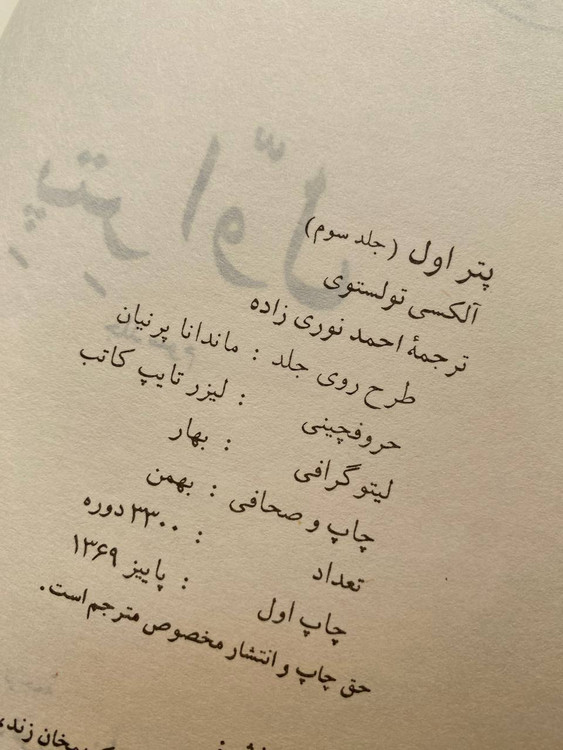 پتر اول (جلد سوم)
آلکسی تولستوی
ترجمهٔ احمد نوری زاده
طرح روی جلد : ماندانا پرنیان
حروفچینی : لیزر تایپ کاتب
لیتوگرافی : بهار
چاپ و صحافی : بهمن
تعداد : ۳۳۰۰ دوره
چاپ اول : پاییز ۱۳۶۹
حق چاپ و انتشار مخصوص مترجم است.
زند،